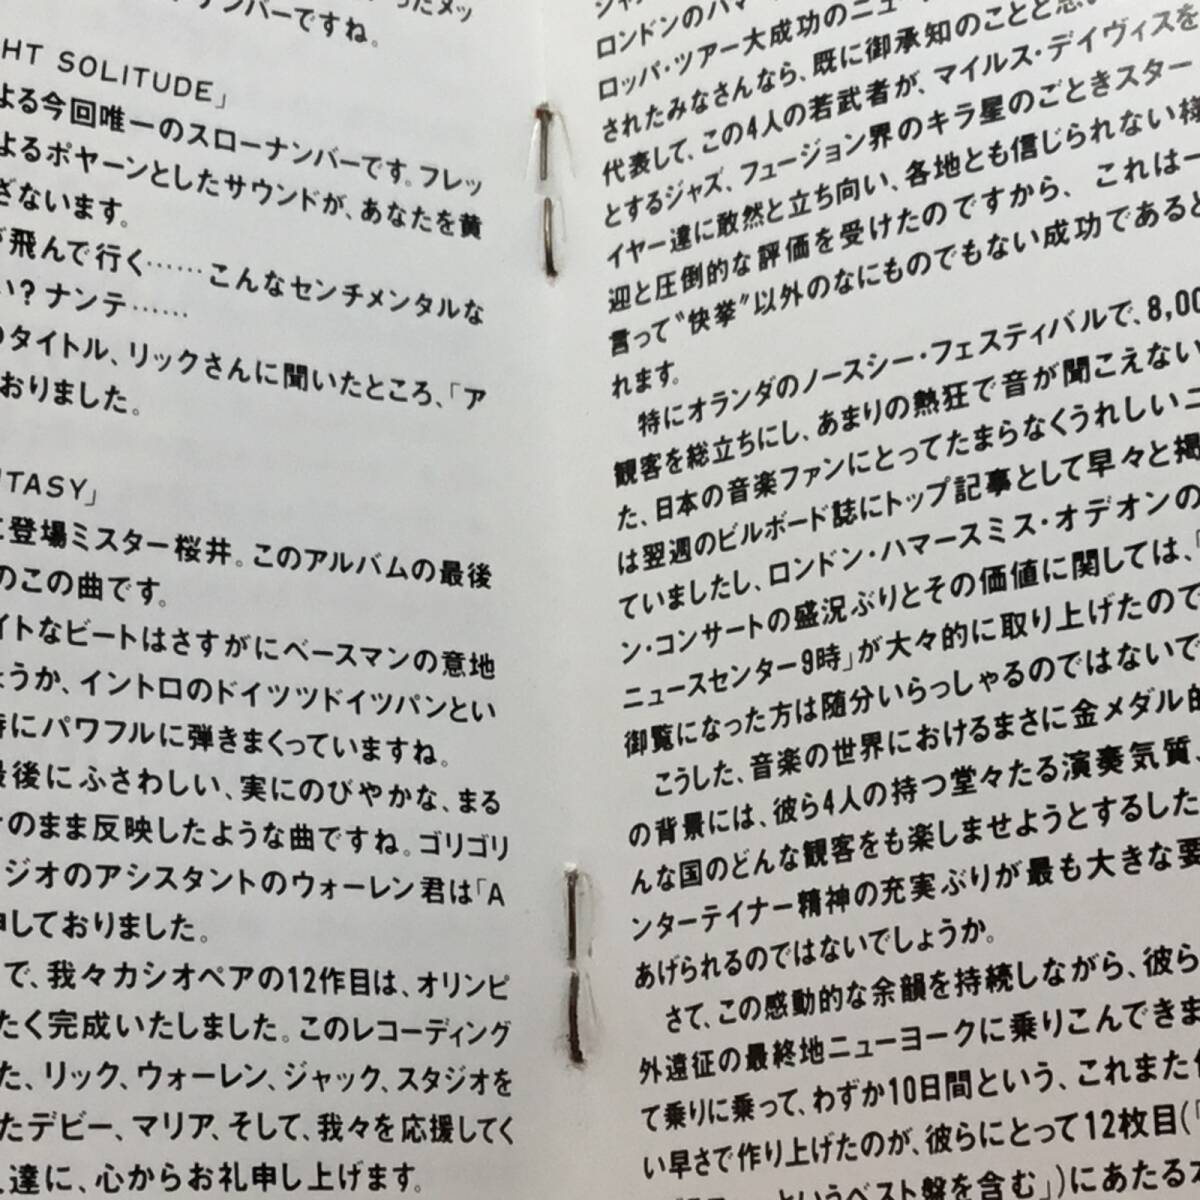 たメッ
ナンバーですね。
HT SOLITUDE」
よる今回唯一のスローナンバーです。フレッ
よるボヤーンとしたサウンドが、あなたを黄
ざないます。
が飛んで行く……こんなセンチメンタルな
い?ナンテ……
のタイトル、リックさんに聞いたところ、「ア
おりました。
NTASY」
に登場ミスター桜井。このアルバムの最後
のこの曲です。
イトなビートはさすがにベースマンの意地
ょうか、イントロのドイツツドイツパンとい
時にパワフルに弾きまくっていますね。
最後にふさわしい、実にのびやかな、まる
そのまま反映したような曲ですね。ゴリゴリ
ジオのアシスタントのウォーレン君は「A
申しておりました。
で、我々カシオペアの12作目は、オリンピ
たく完成いたしました。このレコーディング
た、リック、ウォーレン、ジャック、スタジオを
たデビー、マリア、そして、我々を応援してく
達に、心からお礼申し上げます。
ロンドンのハマー
ロッパ・ツアー大成功のニュー
されたみなさんなら、既に御承知のことと思い
代表して、この4人の若武者が、マイルス・デイヴィスを
とするジャズ、フュージョン界のキラ星のごときスター
イヤー達に敢然と立ち向い、各地とも信じられない様
迎と圧倒的な評価を受けたのですから、これは一
言って“快挙”以外のなにものでもない成功であると
れます。
特にオランダのノースシー・フェスティバルで、8,00
観客を総立ちにし、あまりの熱狂で音が聞こえない
た、日本の音楽ファンにとってたまらなくうれしいニ
は翌週のビルボード誌にトップ記事として早々と掲
ていましたし、ロンドン・ハマースミス・オデオンの
ン・コンサートの盛況ぶりとその価値に関しては、「
ニュースセンター9時」が大々的に取り上げたので
御覧になった方は随分いらっしゃるのではないで
こうした、音楽の世界におけるまさに金メダル的
の背景には、彼ら4人の持つ堂々たる演奏気質、
んな国のどんな観客をも楽しませようとするした
ンターテイナー精神の充実ぶりが最も大きな要
あげられるのではないでしょうか。
さて、この感動的な余韻を持続しながら、彼ら
外遠征の最終地ニューヨークに乗りこんできま
て乗りに乗って、わずか10日間という、これまた
い早さで作り上げたのが、彼らにとって12枚目(「
というベスト盤を含む」)にあたる